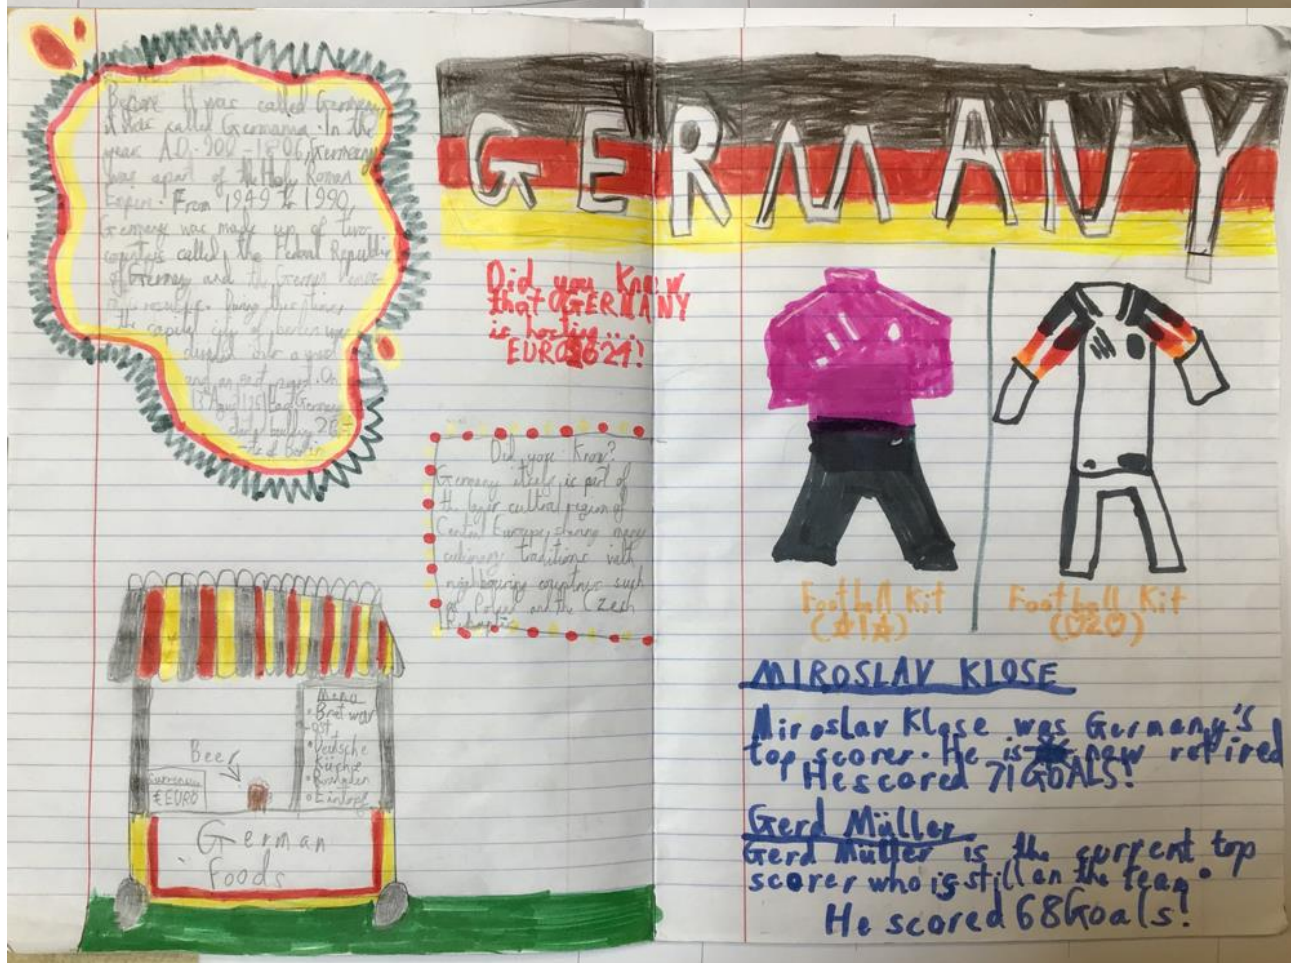 Before It was called Germany
it was called Germania. In the
year A.D. 900 - 1806, Germany
was apart of the Holy Roman
From 1949 to 1990,
Germany was made up of two
called, the Federal Republic
of Germany and the
During this time
the capital city of berlin was
into a west
and an east On
13 East Germany
building
of berlin
GERMANY
Did you Know
that GERMANY
is
EURO 24!
Did you Know?
Germany itself is part of
the cultral region of
Central Europe, sharing many
culinary traditions with
neighbouring countries such
as Poland and the Czech
Football Kit
Football Kit
Menu
• Bratwur
-ost
• Deutsche
• Rouladen
• Eintopf
Beer
Currency
€ EURO
German
Foods
MIROSLAV KLOSE
Miroslav Klose was Germany's
top scorer. He is now retired
He scored 71 GOALS!
Gerd Müller
Gerd Müller is the current top
scorer who is still on the team.
He scored 68 Goals!